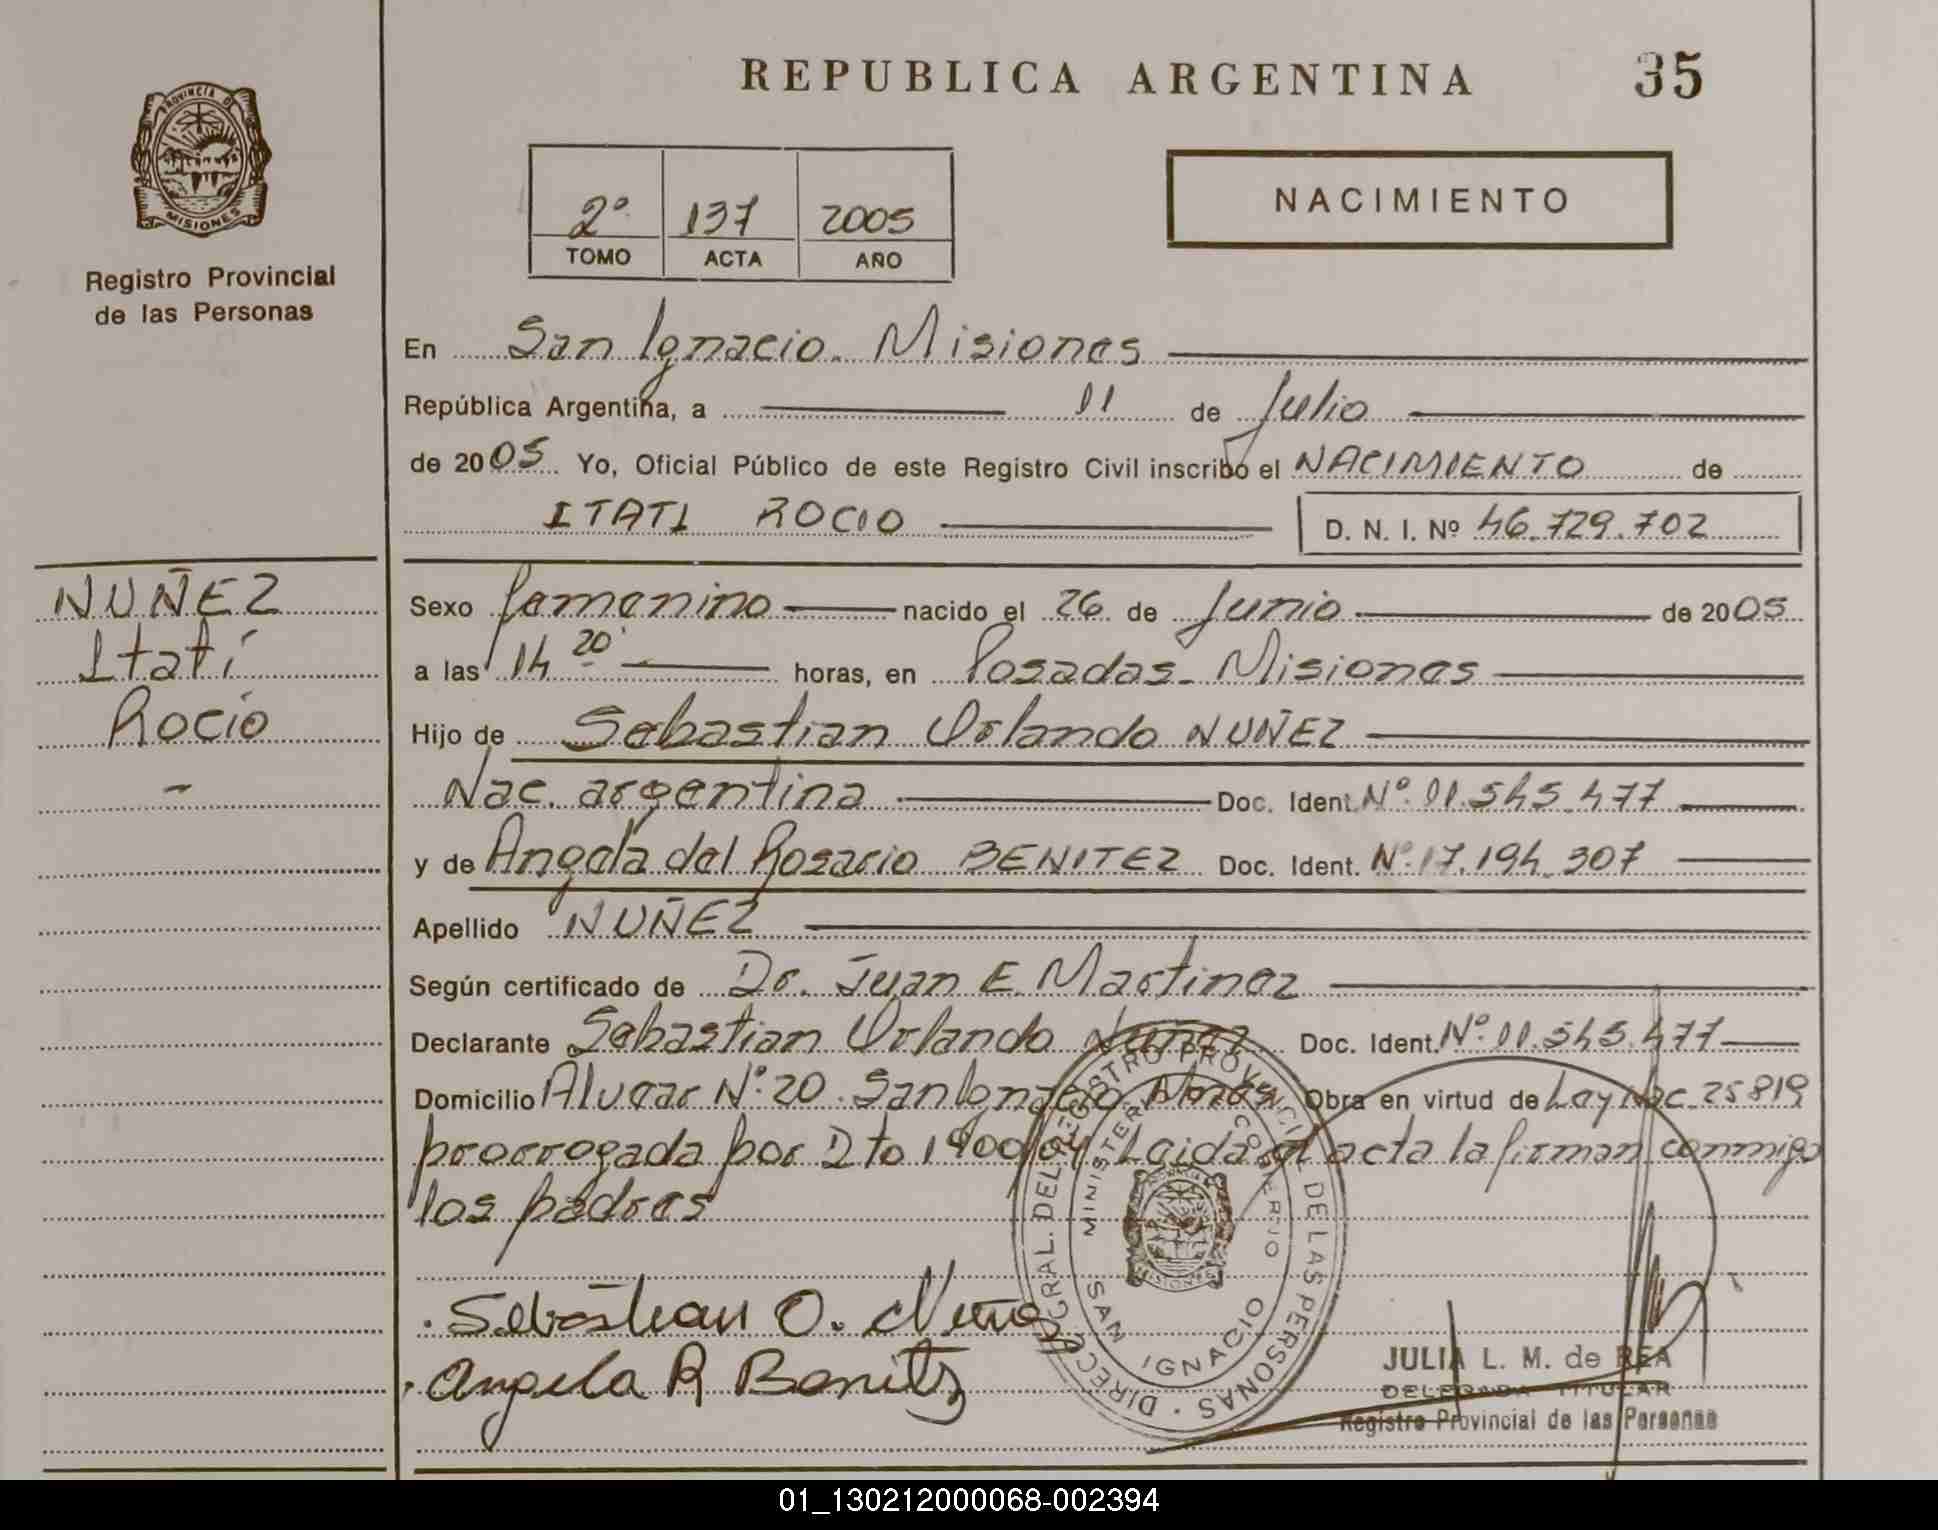 REPUBLICA ARGENTINA 35
PROVINCIA DE
MISIONES
Registro Provincial
de las Personas
2º 137 2005
TOMO ACTA AÑO
NACIMIENTO
En San Ignacio. Misiones
República Argentina, a 11 de Julio
de 2005 Yo, Oficial Público de este Registro Civil inscribo el NACIMIENTO de
ITATI ROCIO D. N. I. Nº 46.729.702
NUÑEZ
Itatí
Rocío
-
Sexo femenino nacido el 26 de Junio de 2005
a las 14 20' horas, en Posadas - Misiones
Hijo de Sebastian Orlando NUÑEZ
Nac. argentina Doc. Ident. Nº 11.545.477
y de Angela del Rosario BENITEZ Doc. Ident. Nº 17.194.307
Apellido NUÑEZ
Según certificado de Dr. Juan E. Martinez
Declarante Sebastian Orlando Nuñez Doc. Ident. Nº 11.545.477
Domicilio Alvear Nº 20. San Ignacio Mnes Obra en virtud de Ley Nac. 25819
prorrogada por Dto 1900/04 Leida el acta la firman conmigo
los padres
Sebastian O. Nuñez
Angela R Benitez
DIREC. GRAL. DEL REGISTRO PROVINCIAL DE LAS PERSONAS
MINISTERIO DE GOBIERNO
SAN IGNACIO
MISIONES
JULIA L. M. de REA
DELEGADA TITULAR
Registro Provincial de las Personas
01_130212000068-002394